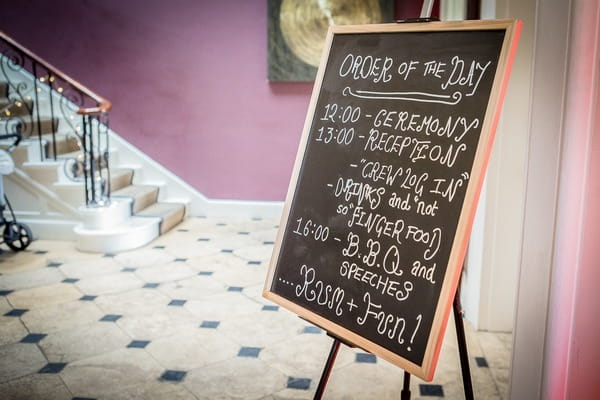 ORDER OF THE DAY
12:00 - CEREMONY
13:00 - RECEPTION
- "CREW LOG IN"
- DRINKS and "not
so" FINGER FOOD
16:00 - B.B.Q and
SPEECHES
.... RUM + FUN!